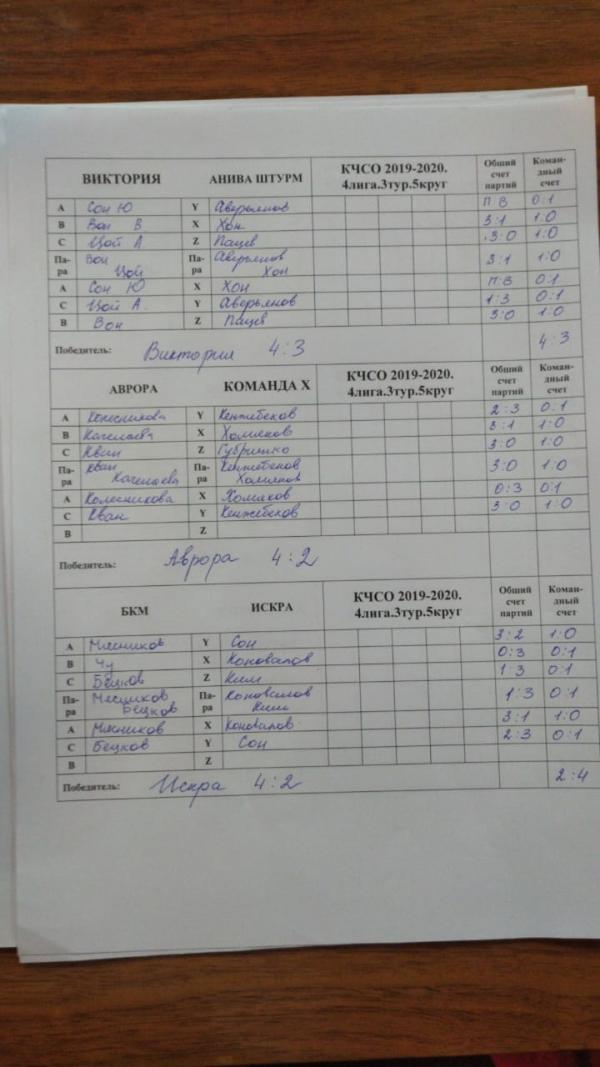 ВИКТОРИЯ АНИВА ШТУРМ КЧСО 2019-2020. 4лига.3тур.5круг Общий счет партий Коман-дный счет
A Сон Ю Y Аверьянов П В 0:1
B Вон В X Хон 3:1 1:0
C Цой А Z Пацев 3:0 1:0
Па-ра Вон Цой Па-ра Аверьянов Хон 3:1 1:0
A Сон Ю X Хон П:В 0:1
C Цой А Y Аверьянов 1:3 0:1
B Вон Z Пацев 3:0 1:0
Победитель: Виктория 4:3 4:3
АВРОРА КОМАНДА Х КЧСО 2019-2020. 4лига.3тур.5круг Общий счет партий Коман-дный счет
A Колесникова Y Кенжебеков 2:3 0:1
B X 3:1 1:0
C Кван Z 3:0 1:0
Па-ра Кван Па-ра Кенжебеков 3:0 1:0
A Колесникова X 0:3 0:1
C Кван Y Кенжебеков 3:0 1:0
B Z
Победитель: Аврора 4:2
БКМ ИСКРА КЧСО 2019-2020. 4лига.3тур.5круг Общий счет партий Коман-дный счет
A Мясников Y Сон 3:2 1:0
B Чу X Коновалов 0:3 0:1
C Бецков Z Ким 1:3 0:1
Па-ра Мясников Бецков Па-ра Коновалов Ким 1:3 0:1
A Мясников X Коновалов 3:1 1:0
C Бецков Y Сон 2:3 0:1
B Z
Победитель: Искра 4:2 2:4